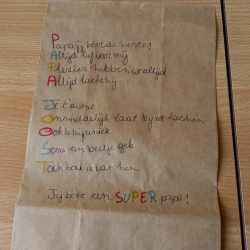 Papa jij bent de beste!
Altijd lief voor mij
Plezier hebben we altijd
Altijd lacht hij

Je t'aime
Onmiddelijk laat hij me lachen
Ook is hij uniek
Soms een beetje gek
Toch hou ik van hem

Jij bent een SUPER papa!